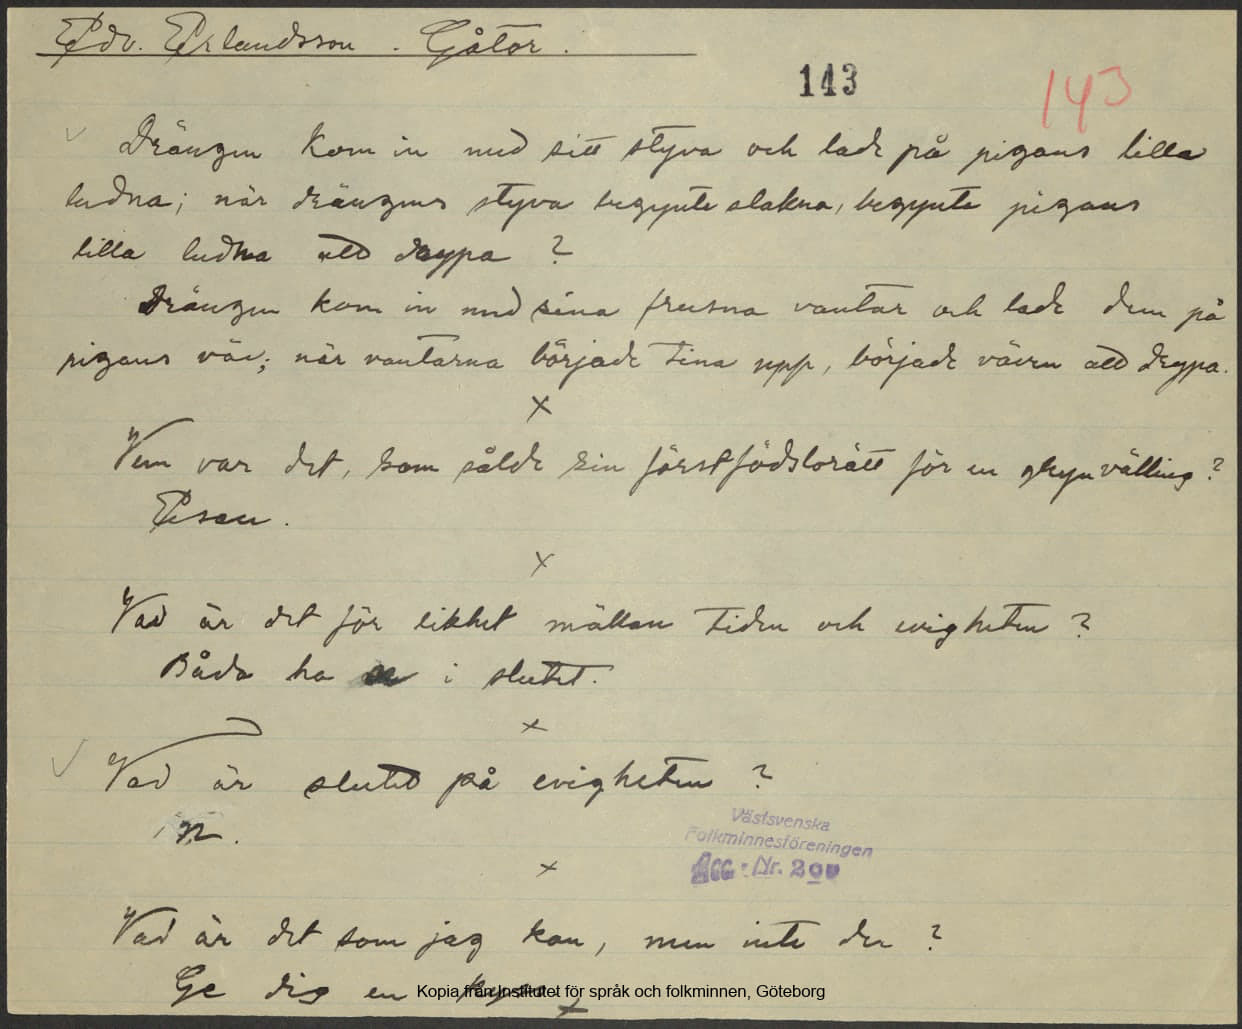 Edv. Erlandsson. Gåtor.
143
143
Drängen kom in med sitt styva och lade på pigans lilla
ludna; när drängens styva begynte slakna, begynte pigans
lilla ludna att drypa?
Drängen kom in med sina frusna vantar och lade dem på
pigans väv; när vantarna började tina upp, började väven att drypa.
x
Vem var det, som sålde sin förstfödslorätt för en grynvälling?
Esau.
x
Vad är det för likhet mällan tiden och evigheten?
Båda ha n i slutet.
x
Vad är slutet på evigheten?
n.
Västsvenska
Folkminnesföreningen
Acc. Nr. 200
x
Vad är det som jag kan, men inte du?
Ge dig en
Kopia från Institutet för språk och folkminnen, Göteborg
x